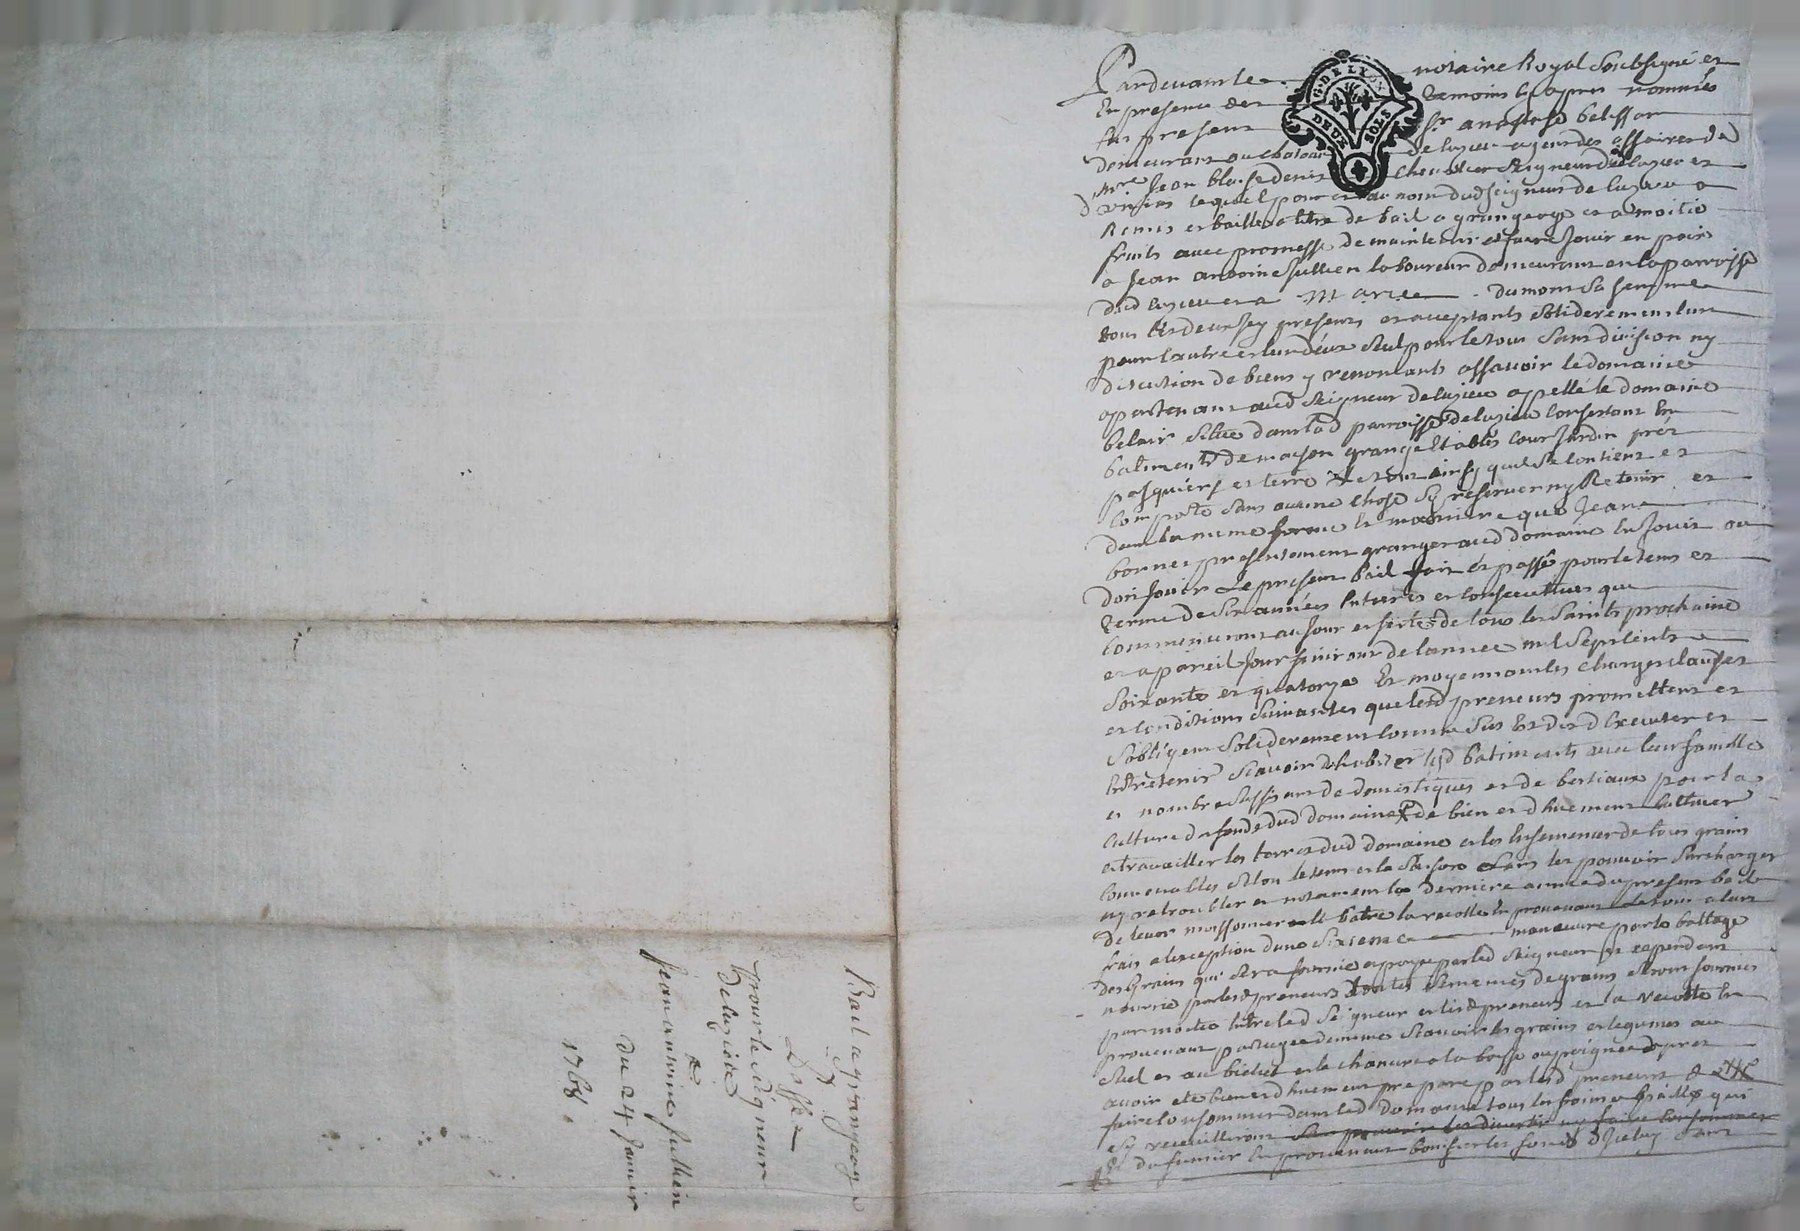 Bail a grangeage
Passé
pour le seigneur
De luzieu
A
Jean antoine Jullien
du 24 Janvir
1768
G. DE LY
DEUX SOLS
Pardevant le notaire Royal Soubsigné et
En presence des temoins Cy apres nommés
fut present Sr anastase
Demeurant au chateau De luzieu agent des affaires de
Mre Jean blaise denis Chevalier Seigneur de luzieu et
lequel pour et au nom dud seigneur de luzieu a
Remis et baillé a titre de bail a grangeage et a moitié
fruits avec promesse de maintenir et faire Jouir en paix
a Jean antoine Jullien laboureur demeurant en la parroisse
dud luzieu et a Marie dumont sa femme
tous deux presents et acceptants solidairement lun
pour l'autre et lun deux seul pour le tout sans division ny
discution de biens y renoncants assavoir le domaine
appartenant aud Seigneur de luzieu appellé le domaine
belair situé dans lad parroisse de luzieu Consistant En
batiments de maison grange Etables Cour Jardin prés
pasquiers et terre le tout ainsy quil se Contient et
Comporte sans aucune chose sy reserver ny Retenir et
dans la meme forme Et maniere que Jean
bornet presentement granger aud domaine En Jouit ou
doit Jouir Le present bail fait et passé pour le tems et
terme de six années Entieres et Consecutives qui
Commenceront au Jour et feste de tous les Saints prochaine
et a pareil Jour finiront de lannee mil Sept Cents
Soixante et quatorze Et moyennant les Charges Clauses
et Conditions suivantes que lesd preneurs promettent et
s'obligent Soliderement Comme Sus Est dit d'Executer et
Entretenir Scavoir d'habiter lesd batiments avec leur famille
et nombre suffisant de domestiques et de bestiaux pour la
Culture du fonds dud domaine de bien et dhuement Cultiver
et travailler les terres dud domaine et les Ensemencer de tous grains
Convenables selon le tems et la Saison sans les pouvoir surcharger
ny retroubler et notament la derniere année du present bail
de lever moissonner et batre la recolte En provenant le tout a leurs
frais a lexception d'une sixieme manœuvre pour le battage
des Grains qui sera fournie et payée par led Seigneur et cependant
nourrie par lesd preneurs toutes semences de grains seront fournies
par moitié Entre led Seigneur et lesd preneurs et la recolte En
provenant partagée de meme Scavoir les grains et legumes au
Suel et au bichet et le chanvre a la basse ou poignee apres
avoir eté bien et dhuement preparé par lesd preneurs de
faire Consommer dans led domaine tous les foins et pailles qui
sy recueilliront sans pouvoir les divertir ny faire Consommer
et du fumier En provenant bonifier les fonds d'Iceluy dont